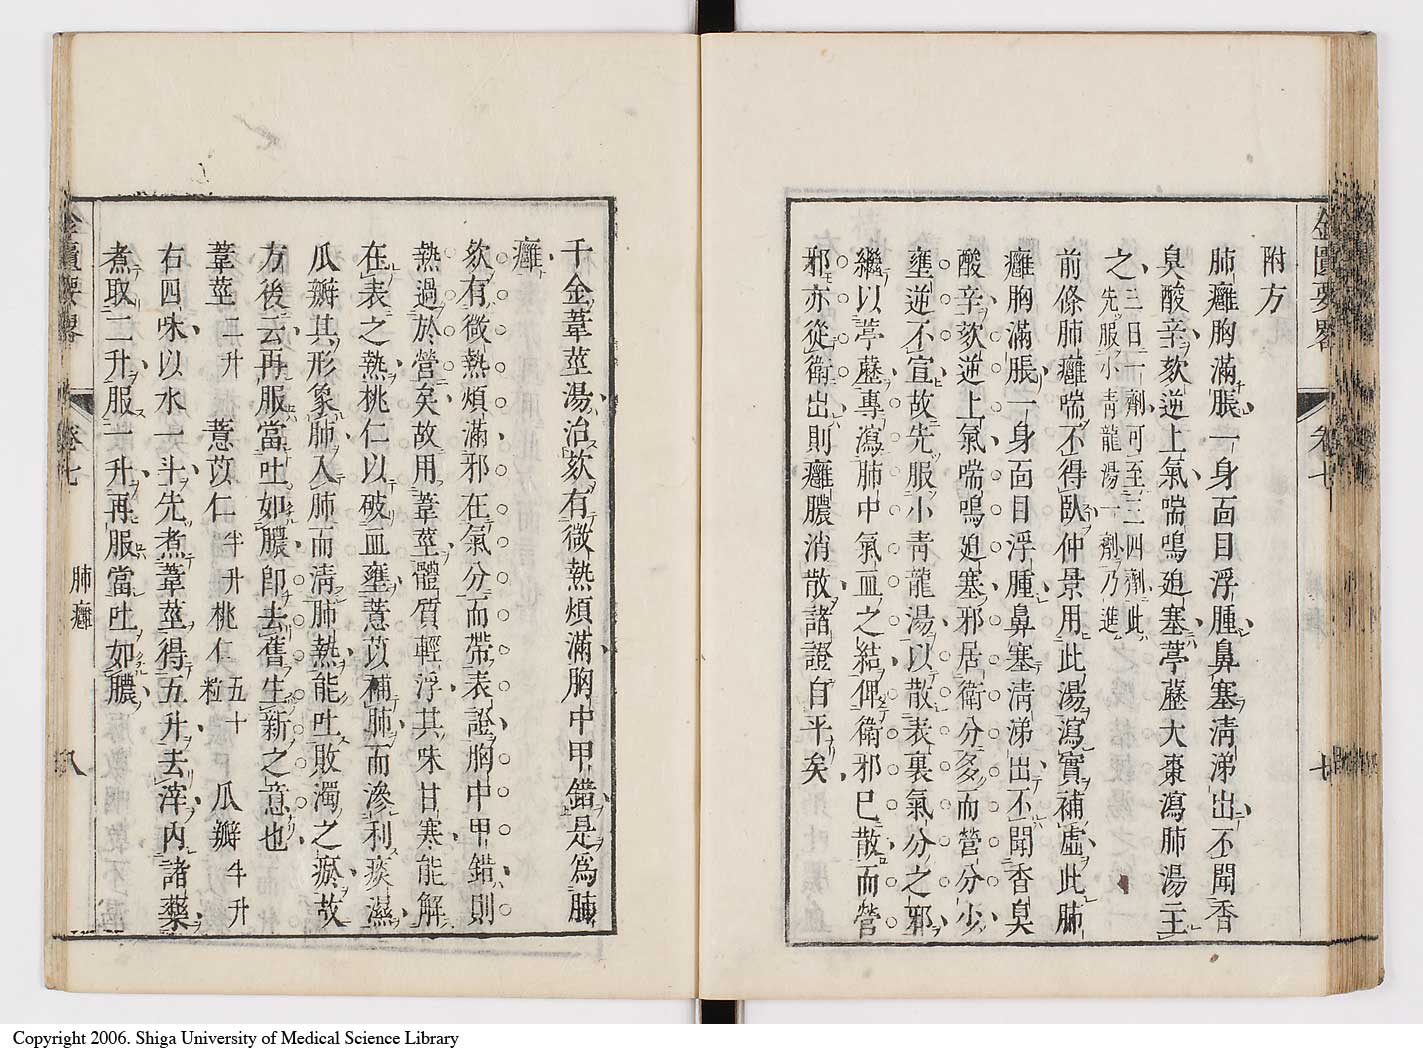 附方
肺癰胸滿脹一身面目浮腫鼻塞淸涕出不聞香
臭酸辛欬逆上氣喘鳴迫塞葶藶大棗瀉肺湯主
之三日一劑可至三四劑此先服小靑龍湯一劑乃進
前條肺癰喘不得臥仲景用此湯瀉實補虛此肺
癰胸滿脹一身面目浮腫鼻塞淸涕出不聞香臭
酸辛欬逆上氣喘鳴迫塞邪居衛分多而營分少
壅逆不宣故先服小靑龍湯以散表裏氣分之邪
繼以葶藶專瀉肺中氣血之結俾衛邪已散而營
邪亦從衛出則癰膿消散諸證自平矣
千金葦莖湯治欬有微熱煩滿胸中甲錯是爲肺
癰
欬有微熱煩滿邪在氣分而帶表證胸中甲錯則
熱過於營矣故用葦莖體質輕浮其味甘寒能解
在表之熱桃仁以破血壅薏苡補肺而滲利痰濕
瓜瓣其形象肺入肺而淸肺熱能吐敗濁之瘀故
方後云再服當吐如膿卽去舊生新之意也
葦莖二升 薏苡仁半升 桃仁五十粒 瓜瓣半升
右四味以水一斗先煮葦莖得五升去滓內諸藥
煮取二升服一升再服當吐如膿
金匱要畧 卷七 肺癰 八
金匱要畧 卷七 七
Copyright 2006. Shiga University of Medical Science Library